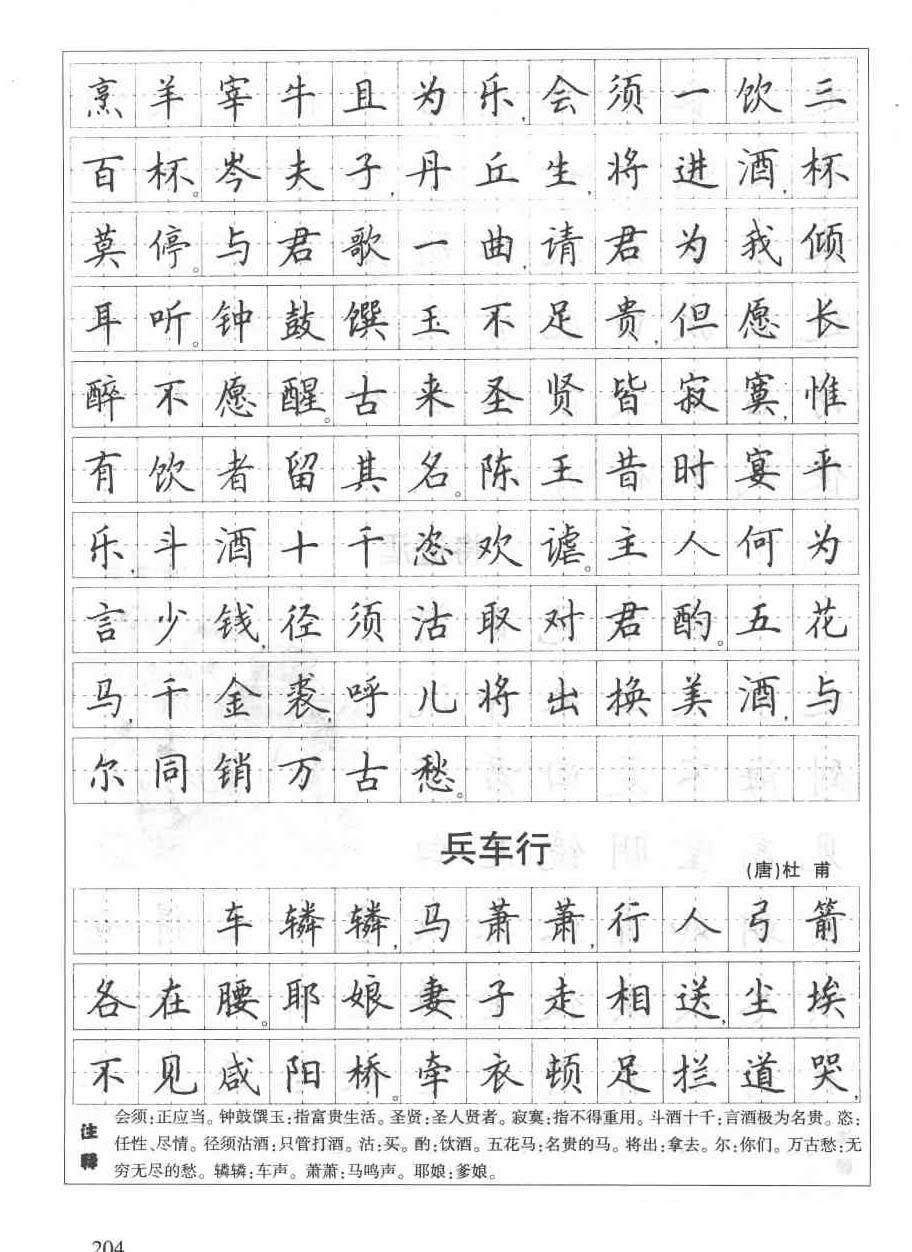 烹羊宰牛且为乐,会须一饮三
百杯。岑夫子,丹丘生,将进酒,杯
莫停。与君歌一曲,请君为我倾
耳听。钟鼓馔玉不足贵,但愿长
醉不愿醒。古来圣贤皆寂寞,惟
有饮者留其名。陈王昔时宴平
乐,斗酒十千恣欢谑。主人何为
言少钱,径须沽取对君酌。五花
马,千金裘,呼儿将出换美酒,与
尔同销万古愁。
兵车行
(唐)杜 甫
车辚辚,马萧萧,行人弓箭
各在腰。耶娘妻子走相送,尘埃
不见咸阳桥。牵衣顿足拦道哭,
注释
会须:正应当。钟鼓馔玉:指富贵生活。圣贤:圣人贤者。寂寞:指不得重用。斗酒十千:言酒极为名贵。恣:
任性、尽情。径须沽酒:只管打酒。沽:买。酌:饮酒。五花马:名贵的马。将出:拿去。尔:你们。万古愁:无
穷无尽的愁。辚辚:车声。萧萧:马鸣声。耶娘:爹娘。
204